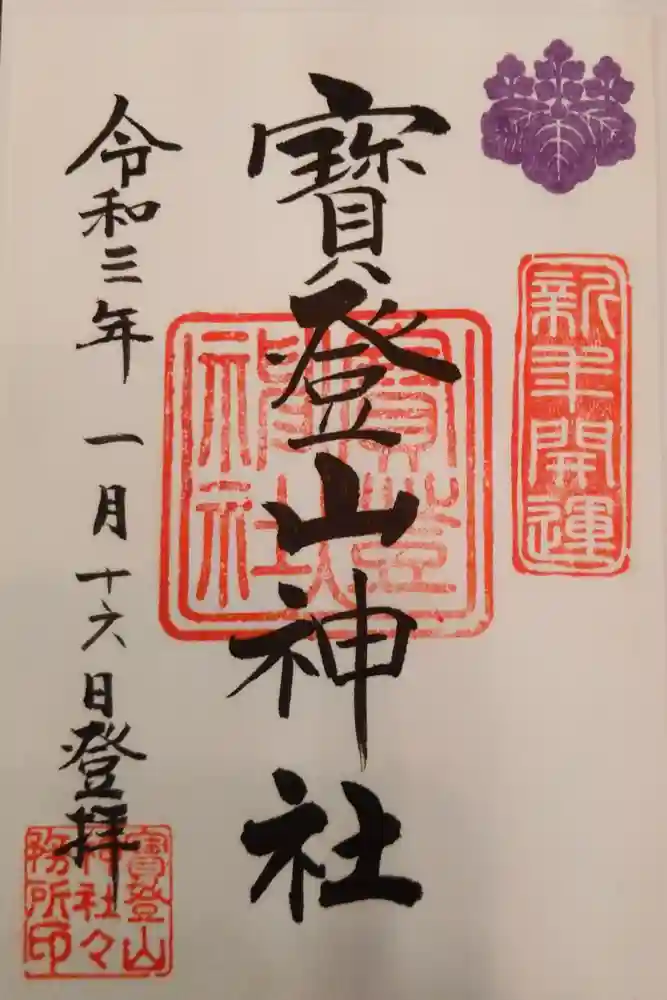 新年開運
寶登山神社
寶登山神社
令和三年 一月十六日登拝
寶登山
神社々
務所印